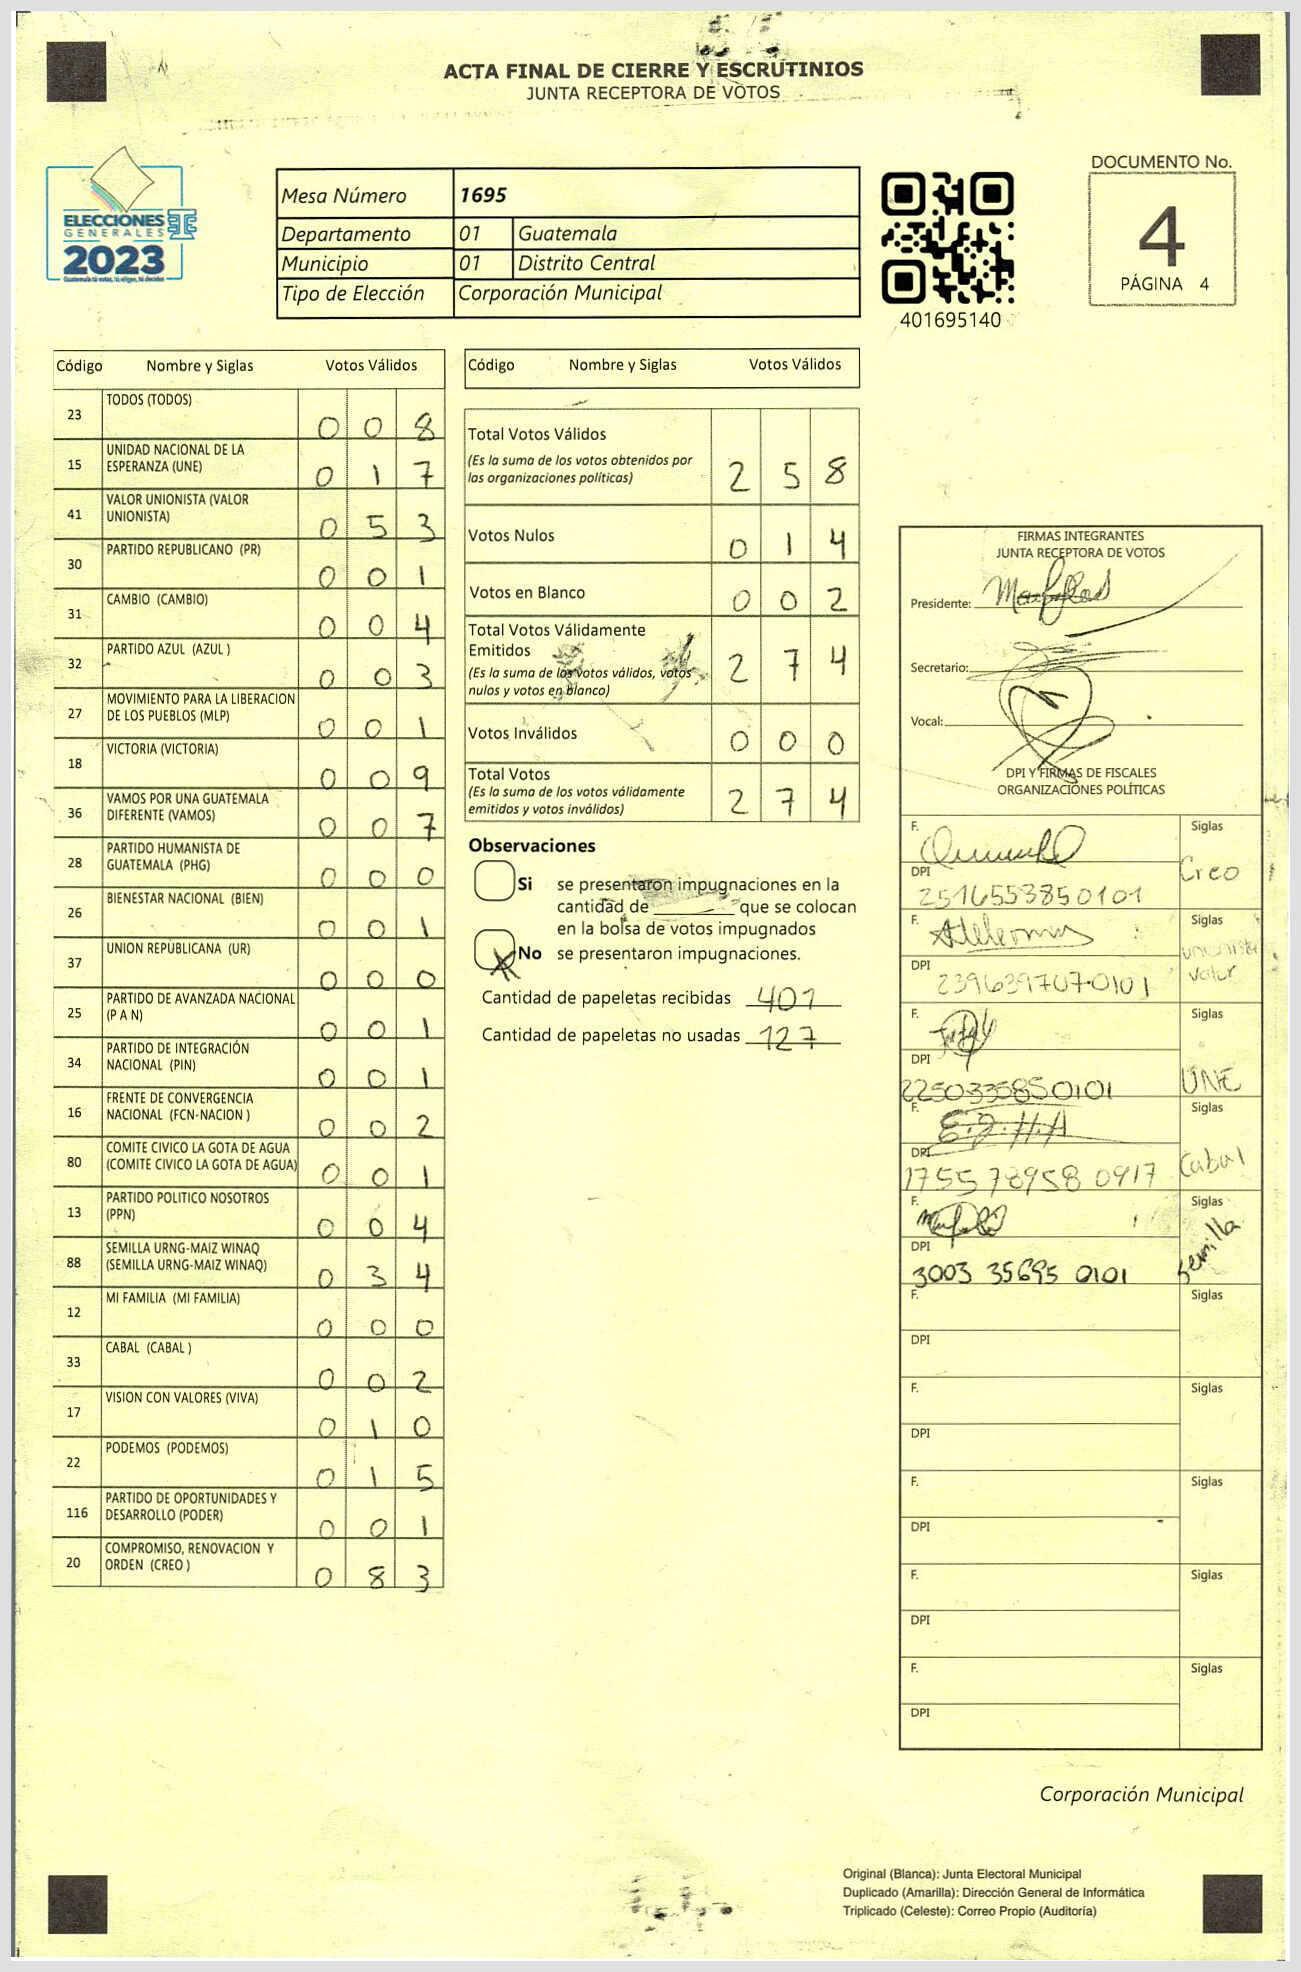 ACTA FINAL DE CIERRE Y ESCRUTINIOS
JUNTA RECEPTORA DE VOTOS
ELECCIONES
GENERALES
2023
Guatemala tú votas, tú eliges, tú decides
Mesa Número 1695
Departamento 01 Guatemala
Municipio 01 Distrito Central
Tipo de Elección Corporación Municipal
401695140
DOCUMENTO No.
4
PÁGINA 4
Código Nombre y Siglas Votos Válidos
23 TODOS (TODOS) 0 0 8
15 UNIDAD NACIONAL DE LA
ESPERANZA (UNE) 0 1 7
41 VALOR UNIONISTA (VALOR
UNIONISTA) 0 5 3
30 PARTIDO REPUBLICANO (PR) 0 0 1
31 CAMBIO (CAMBIO) 0 0 4
32 PARTIDO AZUL (AZUL ) 0 0 3
27 MOVIMIENTO PARA LA LIBERACION
DE LOS PUEBLOS (MLP) 0 0 1
18 VICTORIA (VICTORIA) 0 0 9
36 VAMOS POR UNA GUATEMALA
DIFERENTE (VAMOS) 0 0 7
28 PARTIDO HUMANISTA DE
GUATEMALA (PHG) 0 0 0
26 BIENESTAR NACIONAL (BIEN) 0 0 1
37 UNION REPUBLICANA (UR) 0 0 0
25 PARTIDO DE AVANZADA NACIONAL
(P A N) 0 0 1
34 PARTIDO DE INTEGRACIÓN
NACIONAL (PIN) 0 0 1
16 FRENTE DE CONVERGENCIA
NACIONAL (FCN-NACION ) 0 0 2
80 COMITE CIVICO LA GOTA DE AGUA
(COMITE CIVICO LA GOTA DE AGUA) 0 0 1
13 PARTIDO POLITICO NOSOTROS
(PPN) 0 0 4
88 SEMILLA URNG-MAIZ WINAQ
(SEMILLA URNG-MAIZ WINAQ) 0 3 4
12 MI FAMILIA (MI FAMILIA) 0 0 0
33 CABAL (CABAL ) 0 0 2
17 VISION CON VALORES (VIVA) 0 1 0
22 PODEMOS (PODEMOS) 0 1 5
116 PARTIDO DE OPORTUNIDADES Y
DESARROLLO (PODER) 0 0 1
20 COMPROMISO, RENOVACION Y
ORDEN (CREO ) 0 8 3
Código Nombre y Siglas Votos Válidos
Total Votos Válidos
(Es la suma de los votos obtenidos por
las organizaciones políticas) 2 5 8
Votos Nulos 0 1 4
Votos en Blanco 0 0 2
Total Votos Válidamente
Emitidos
(Es la suma de los votos válidos, votos
nulos y votos en blanco) 2 7 4
Votos Inválidos 0 0 0
Total Votos
(Es la suma de los votos válidamente
emitidos y votos inválidos) 2 7 4
Observaciones
Si se presentaron impugnaciones en la
cantidad de ______ que se colocan
en la bolsa de votos impugnados
X No se presentaron impugnaciones.
Cantidad de papeletas recibidas 401
Cantidad de papeletas no usadas 127
FIRMAS INTEGRANTES
JUNTA RECEPTORA DE VOTOS
Presidente:
Secretario:
Vocal:
DPI Y FIRMAS DE FISCALES
ORGANIZACIONES POLÍTICAS
F. Siglas
DPI Creo
2516553850101
F. Siglas
unionista
DPI Valor
239639707-0101
F. Siglas
DPI UNE
2250335850101
F. E.J.H.A Siglas
DPI Cabal
1755 78958 0917
F. Siglas
DPI Semilla
3003 35695 0101
F. Siglas
DPI
F. Siglas
DPI
F. Siglas
DPI
F. Siglas
DPI
F. Siglas
DPI
Corporación Municipal
Original (Blanca): Junta Electoral Municipal
Duplicado (Amarilla): Dirección General de Informática
Triplicado (Celeste): Correo Propio (Auditoría)